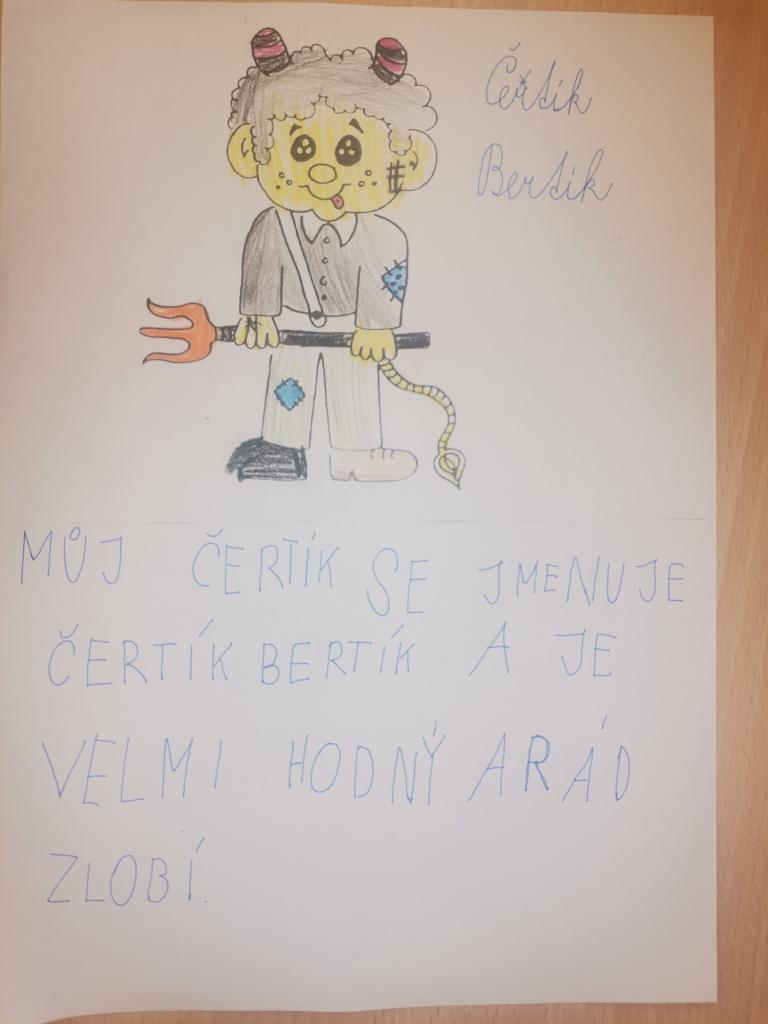 Čertík
Bertík
MŮJ ČERTÍK SE JMENUJE
ČERTÍK BERTÍK A JE
VELMI HODNÝ A RÁD
ZLOBÍ.